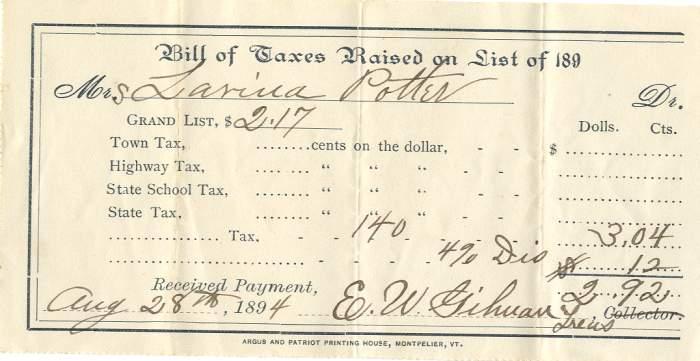 Bill of Taxes Raised on List of 189
Mrs Lavina Potter Dr.
GRAND LIST, $ 2.17 Dolls. Cts.
Town Tax, ........cents on the dollar, - - $ ....................
Highway Tax, ........ " " " - - ....................
State School Tax, ........ " " " - - ....................
State Tax, ........ " " " - - ....................
.................... Tax, - - 140 - - 3.04
4% Dis $ 12
Received Payment, 2.92
Aug 28th, 1894 E. W. Gilman Treas Collector.
ARGUS AND PATRIOT PRINTING HOUSE, MONTPELIER, VT.